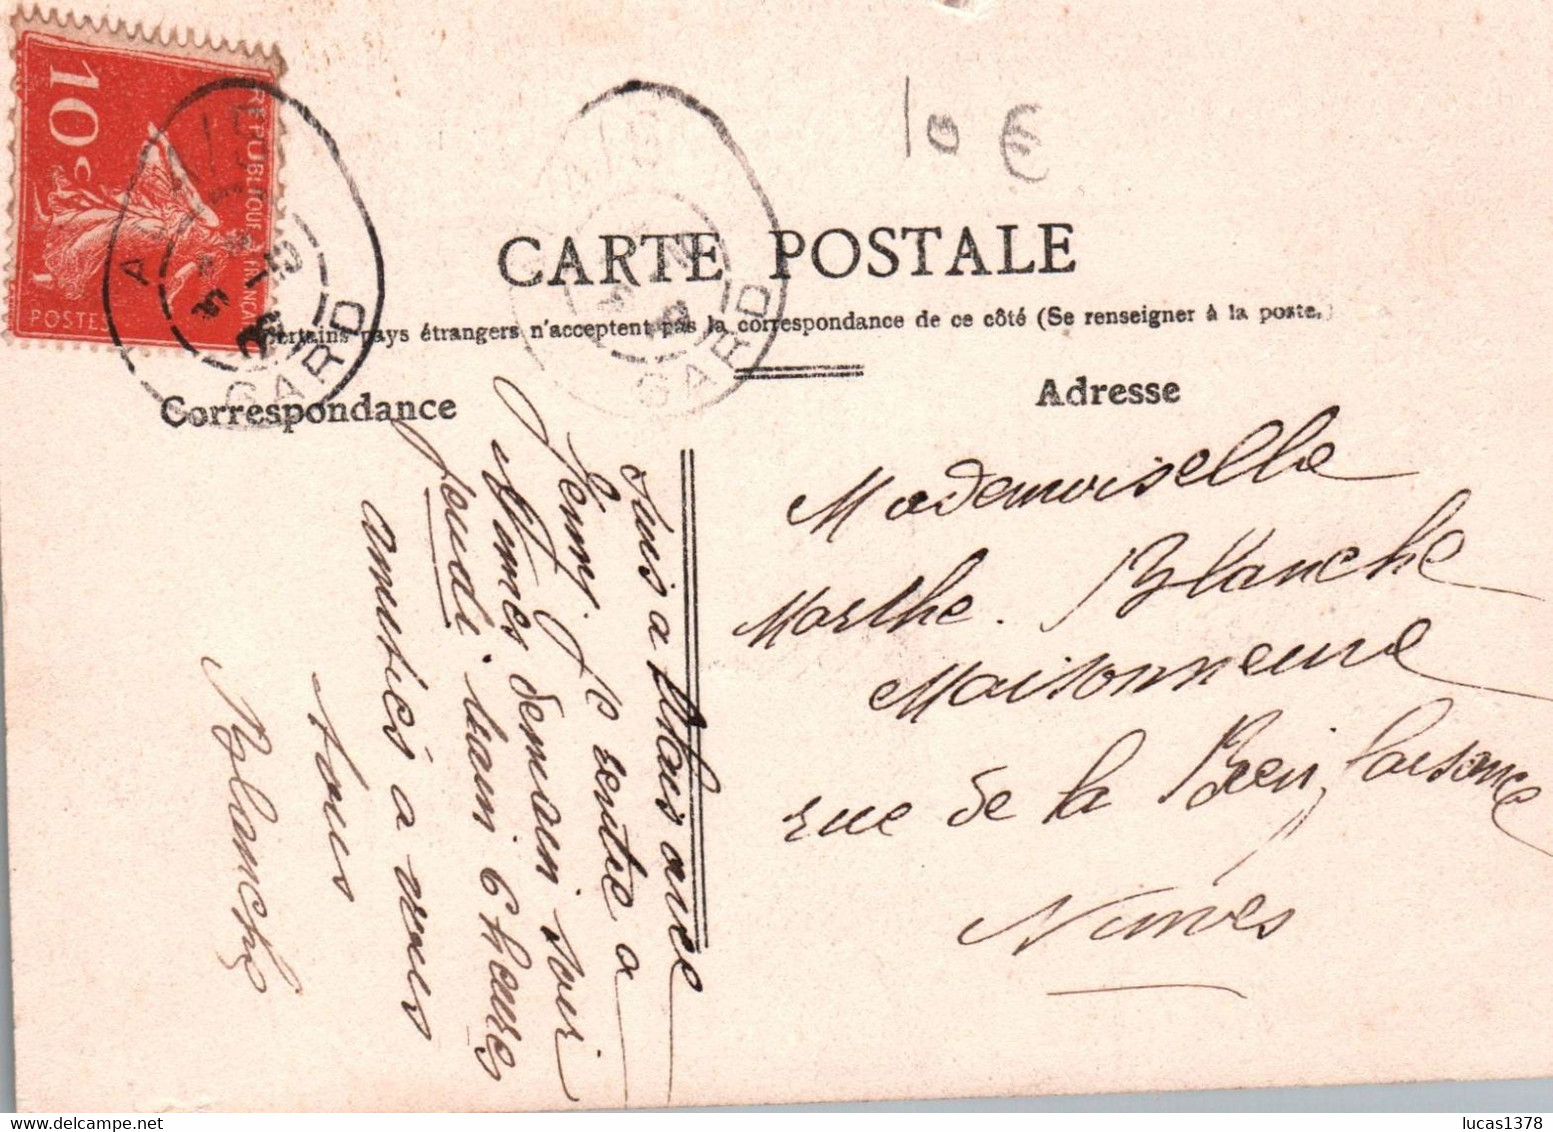 10c
REPUBLIQUE FRANÇAISE
POSTES
ALAIS
GARD
ALAIS
GARD
10 €
CARTE POSTALE
Certains pays étrangers n'acceptent pas la correspondance de ce côté (Se renseigner à la poste.)
Correspondance
Adresse
Suis a Alais avec
Jenny. Je rentre a
Nimes demain soir
Jeudi. train 6 heures
amitiés a vous
tous
Blanche
Mademoiselle
Marthe. Blanche
Maisonneuve
rue de la Bienfaisance
Nimes
lucas1378